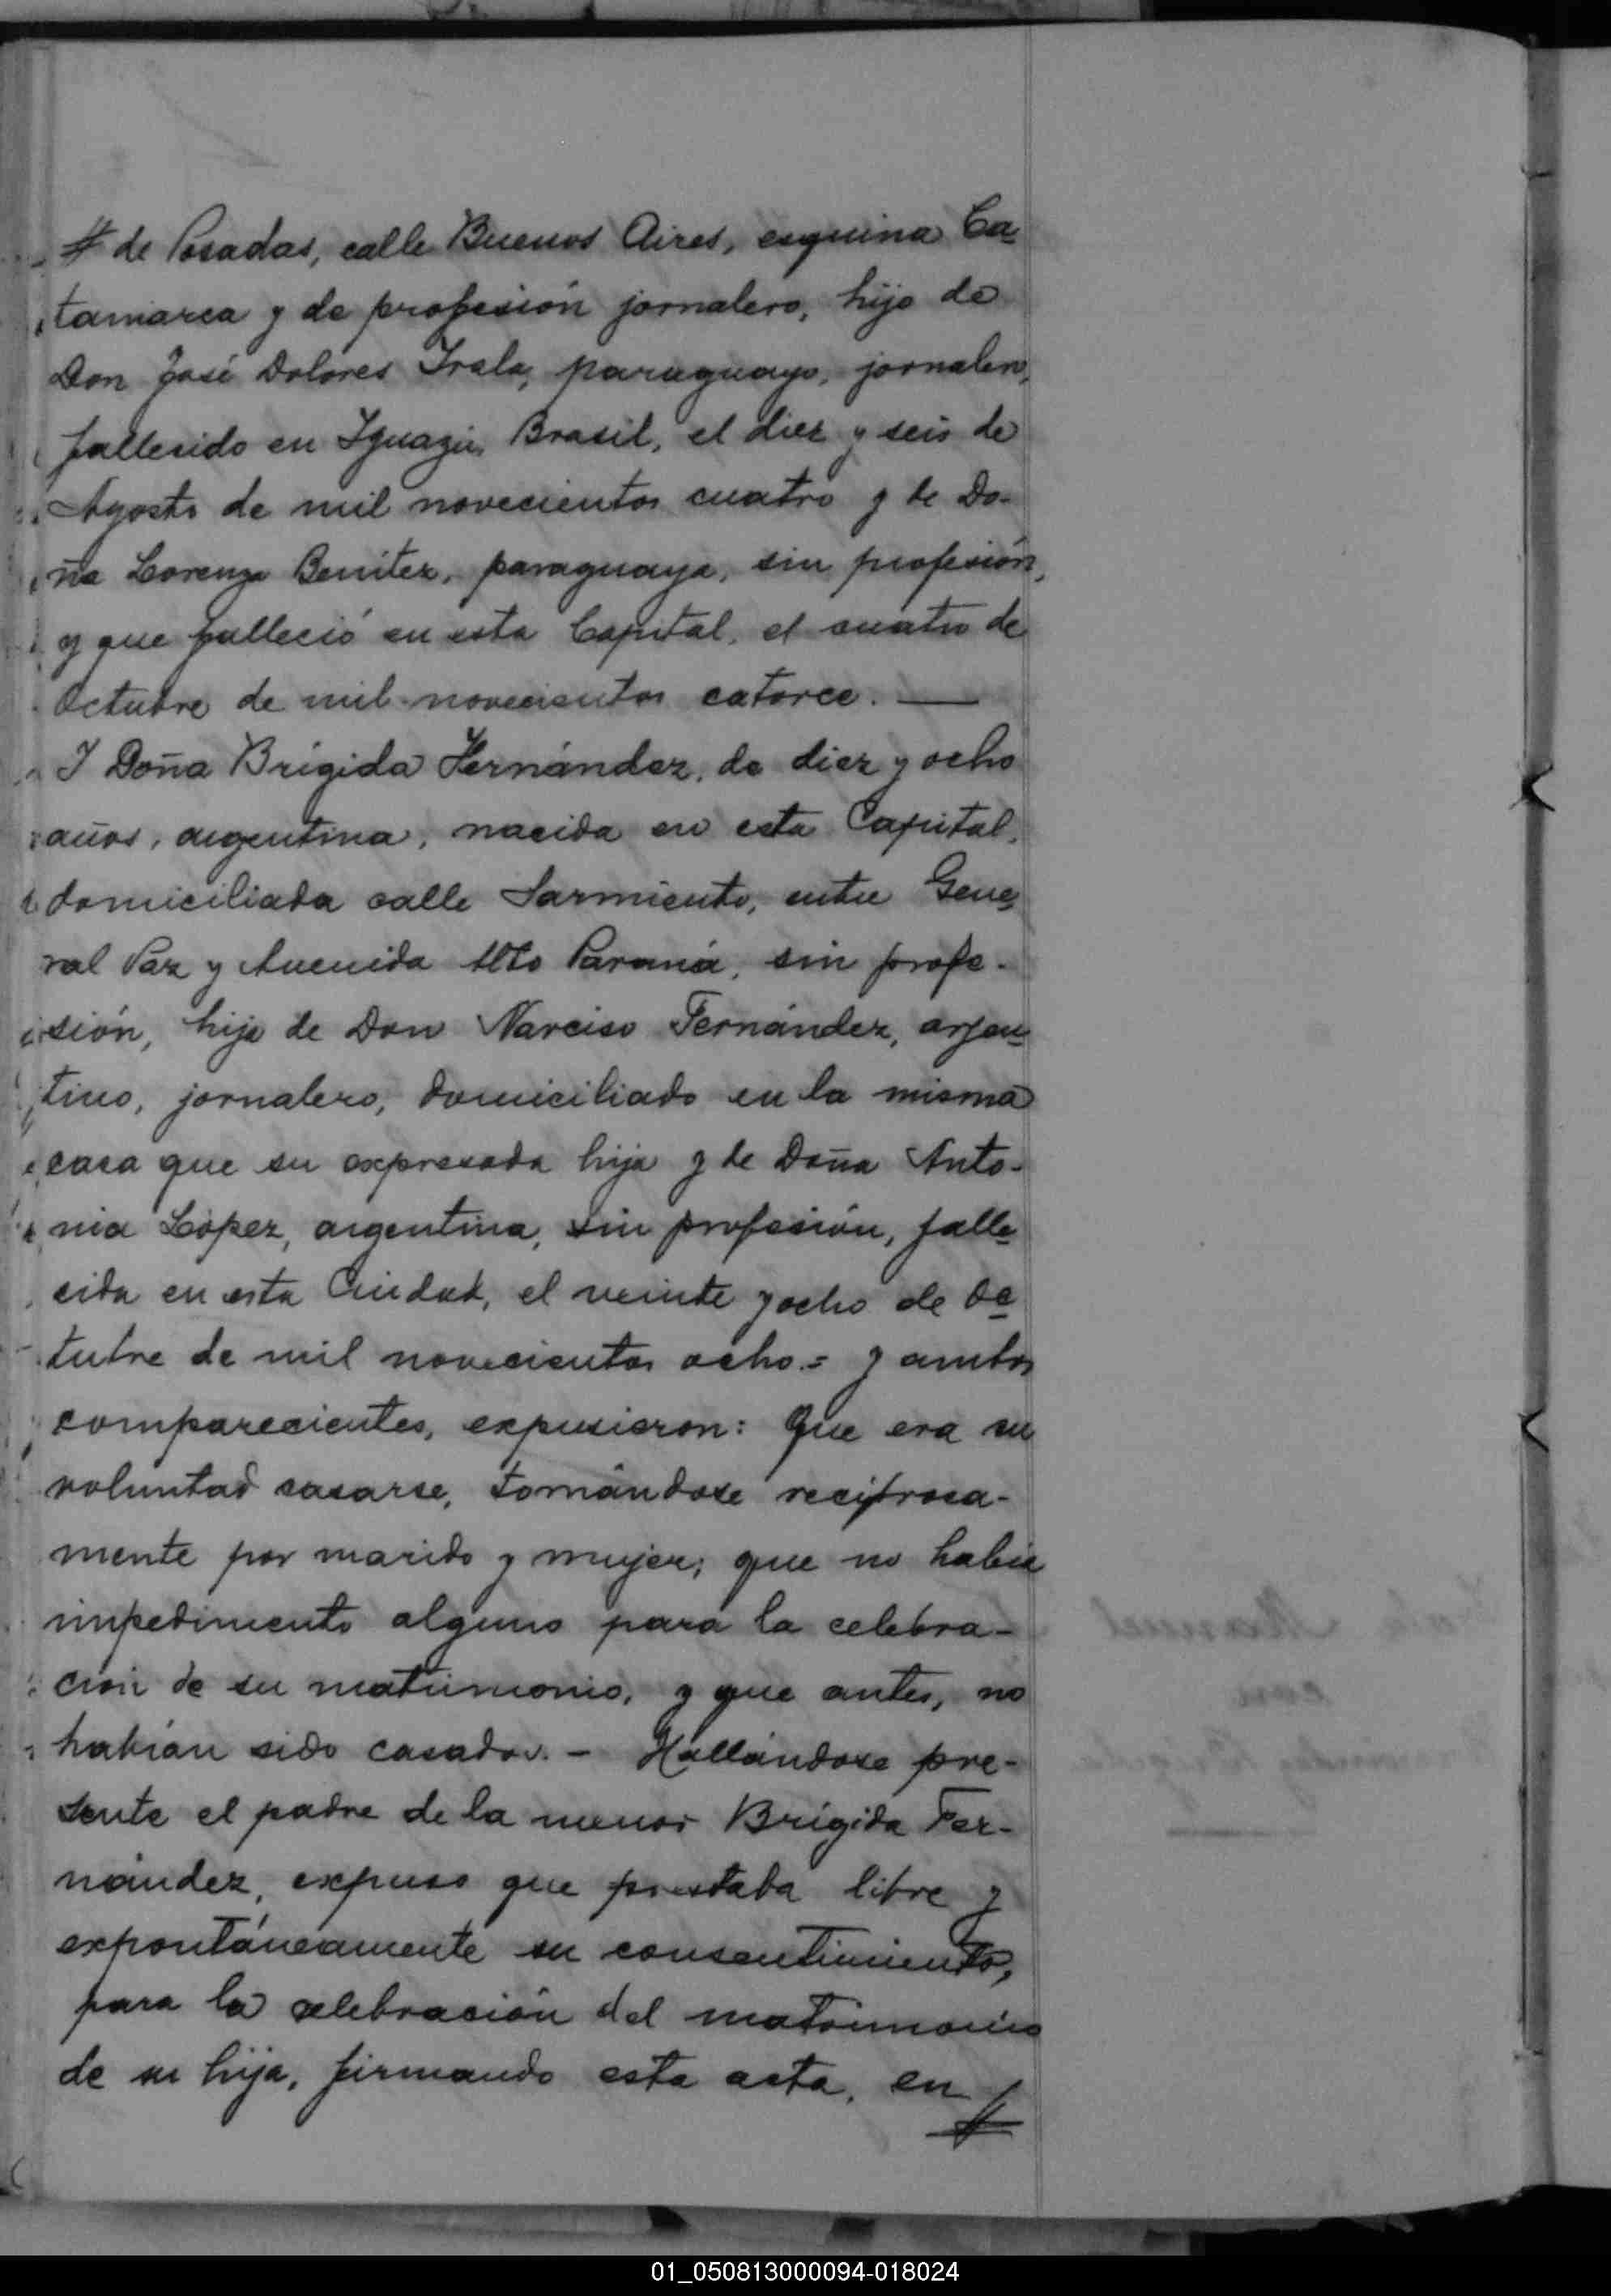 # de Posadas, calle Buenos Aires, esquina Ca-
tamarca y de profesión jornalero, hijo de
Don José Dolores Irala, paraguayo, jornalero,
fallesido en Iguazú, Brasil, el diez y seis de
Agosto de mil novecientos cuatro y de Do-
ña Lorenza Benitez, paraguaya, sin profesión,
y que falleció en esta Capital, el cuatro de
Octubre de mil novecientos catorce. —
Y Doña Brígida Fernández, de diez y ocho
años, argentina, nacida en esta Capital,
domiciliada calle Sarmiento, entre Gene-
ral Paz y Avenida Alto Paraná, sin profe-
sión, hija de Don Narciso Fernández, arjen-
tino, jornalero, domiciliado en la misma
casa que su expresada hija y de Doña Anto-
nia López, argentina, sin profesión, falle-
sida en esta Ciudad, el veinte y ocho de Oc-
tubre de mil novecientos ocho.= y ambos
comparecientes, expusieron: Que era su
voluntad casarse, tomándose recíproca-
mente por marido y mujer; que no había
impedimento alguno para la celebra-
ción de su matrimonio, y que antes, no
habían sido casados. - Hallándose pre-
sente el padre de la menor Brígida Fer-
nández, expuso que prestaba libre y
expontáneamente su consentimiento,
para la celebración del matrimonio
de su hija, firmando esta acta, en #
01_050813000094-018024